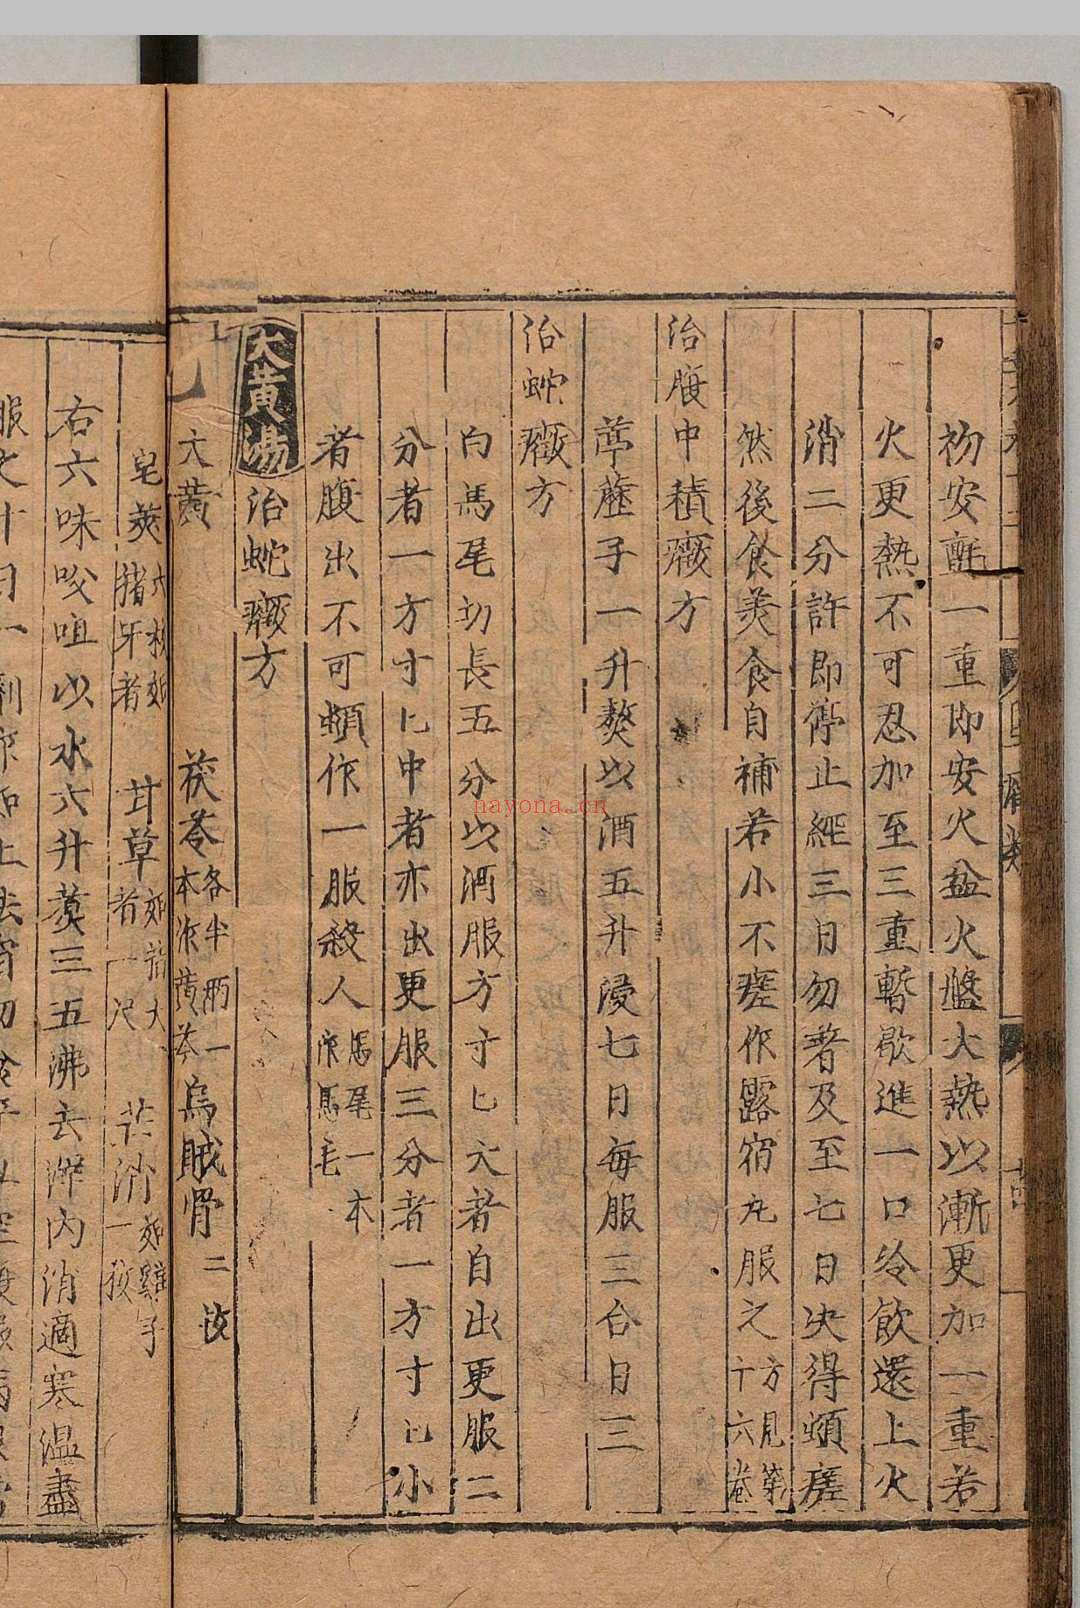 初安氈一重即安火盆火盤大熱以漸更加一重若
火更熱不可忍加至三重暫歇進一口冷飲還上火
消二分許即停止經三日勿著及至七日决得頓瘥
然後食羙食自補若小不瘥作露宿丸服之方見第十六卷
治腹中積癥方
葶藶子一升熬以酒五升浸七日每服三合日三
治蛇癥方
白馬尾切長五分以酒服方寸匕大者自出更服二
分者一方寸匕中者亦出更服三分者一方寸匕小
者腹出不可頓作一服殺人馬尾一本作馬毛
大黄湯治蛇癥方
大黄 茯苓各半兩一本作黄芩 烏賊骨二枚
皂莢六枚如猪牙者 甘草如指大者一尺 芒消如雞子一枚
右六味㕮咀以水六升煑三五沸去滓内消適寒温盡
nayona.cn